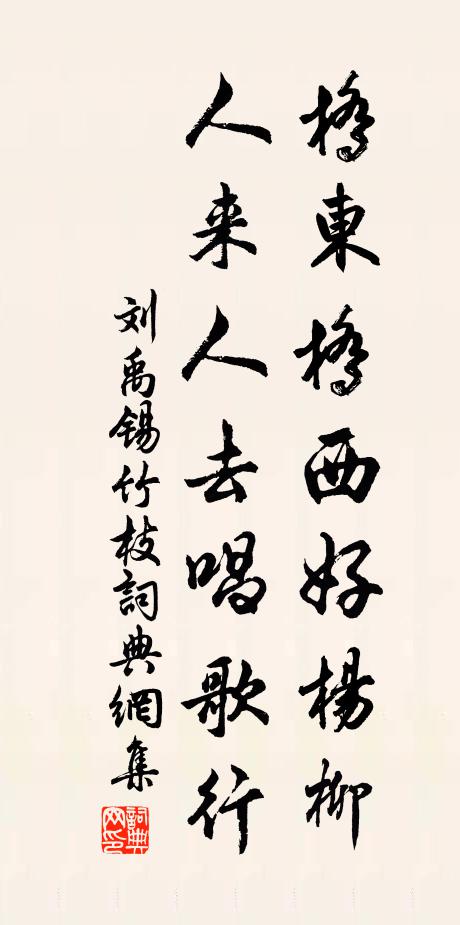 橋東橋西好楊柳
人来人去唱歌行
刘禹錫竹枝詞典網集
詞典网印